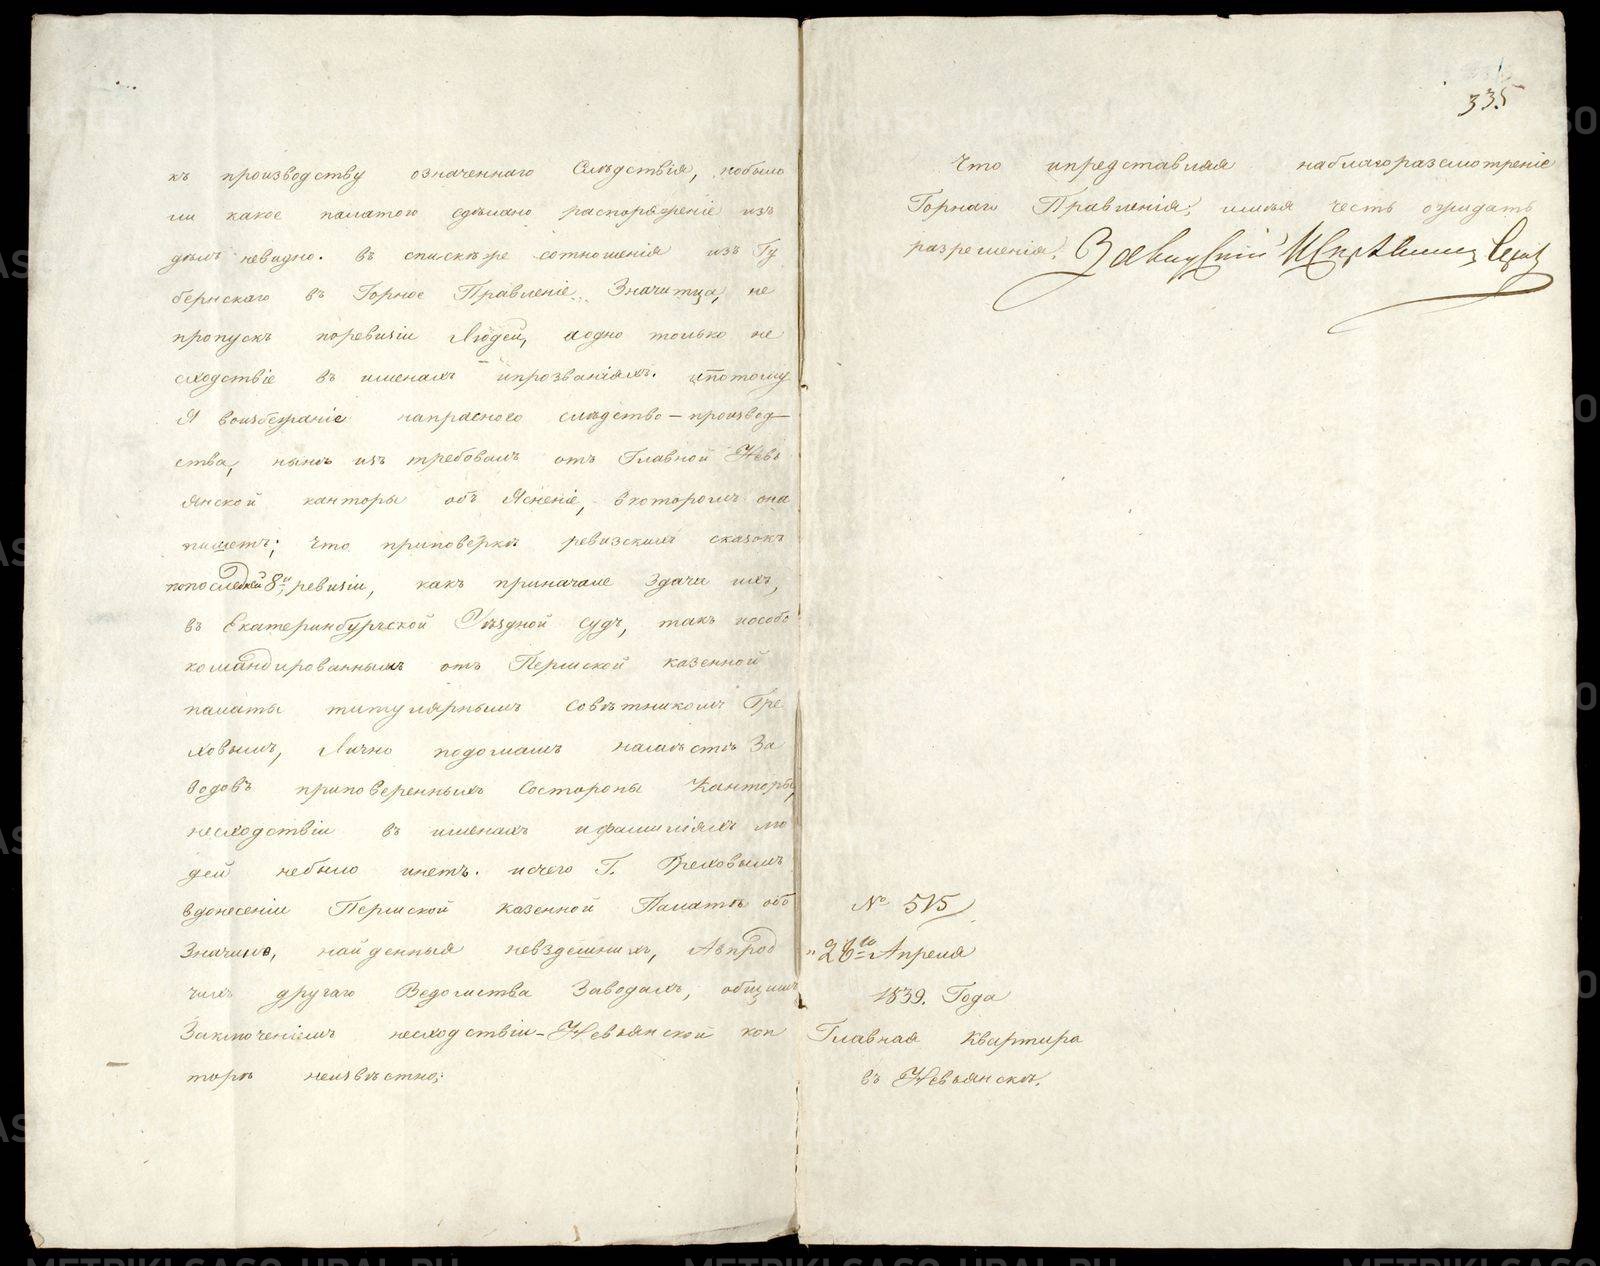 къ производству означеннаго Слѣдствія, побыло
ли какое палатою сдѣлано распоряженіе изъ
дѣлъ невидно. въ спискѣже сотношенія изъ Гу
бернскаго въ Горное Правленіе Значитца, не
пропускъ поревизіи Людей, аодно только не
сходствіе въ именахъ ипрозваніяхъ. ипотому
Я воизбежаніе напраснаго слѣдство-производ-
ства, нынѣ изъ требовалъ отъ Главной Невь
янской канторы объ Ясненіе, вкоторомъ она
пишетъ; что приповеркѣ ревизскихъ сказокъ
попоследней 8й ревизіи, какъ приначале Здачи ихъ,
въ Екатеринбургской Уѣздной судъ, такъ иособо
командированнымъ отъ Пермской казенной
палаты титулярнымъ Советникомъ Гре
ховымъ, Лично подомамъ намѣстѣ За
водовъ приповеренныхъ Состороны Канторы,
несходствіи въ именахъ ифамиліяхъ лю
дей небыло инетъ. ичего Г. Греховымъ
вдонесеніи Пермской казенной Палатѣ обо
Значино, найденныя невздешнихъ, Авпрод
чихъ другаго Ведомства Заводахъ, общимъ
Заключеніемъ несходствіи-Невьянской кон
торѣ неизвѣстно;
335
Что ипредставляя наблагоразсмотреніе
Горнаго Правленія; имѣя честь ожидать
разрешенія. Заводскій Исправникъ
№ 515
"26го Апреля
1839. Года
Главная Квартира
въ Невьянскѣ.
METRIKI.GASO-URAL.RU